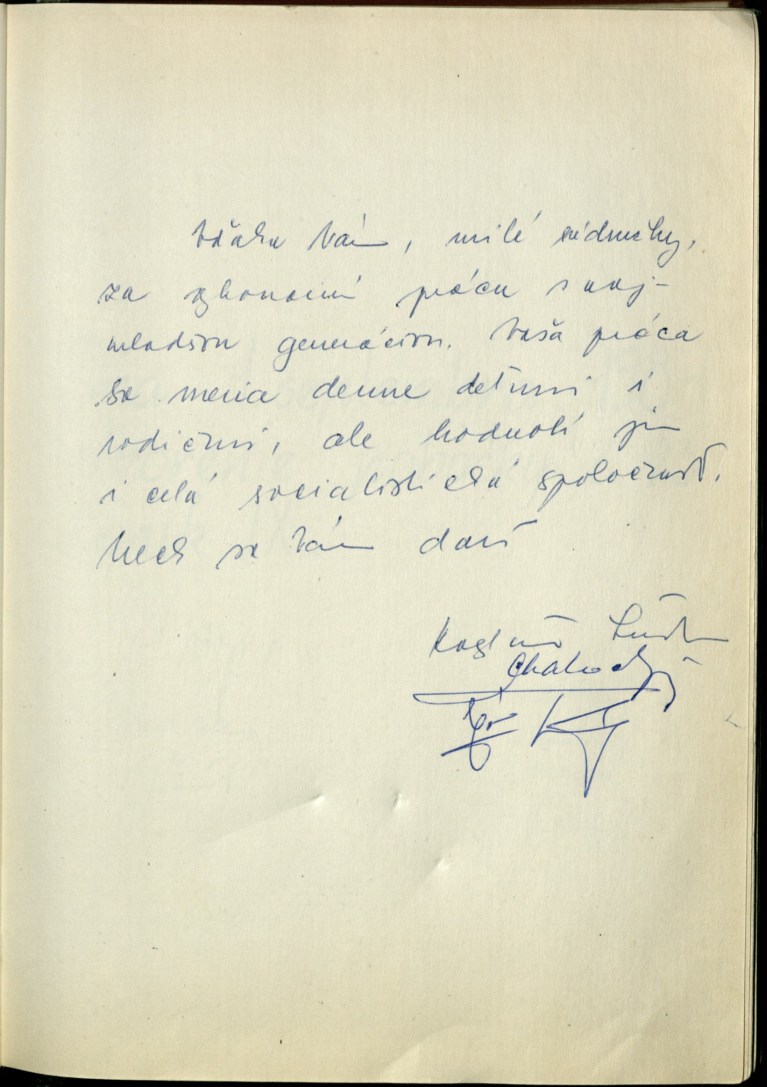 Vďaka Vám, milé súdružky,
za vykonanú prácu s naj-
mladšou generáciou. Vaša práca
sa meria denne deťmi i
rodičmi, ale hodnotí ju
i celá socialistická spoločnosť.
Nech sa Vám darí